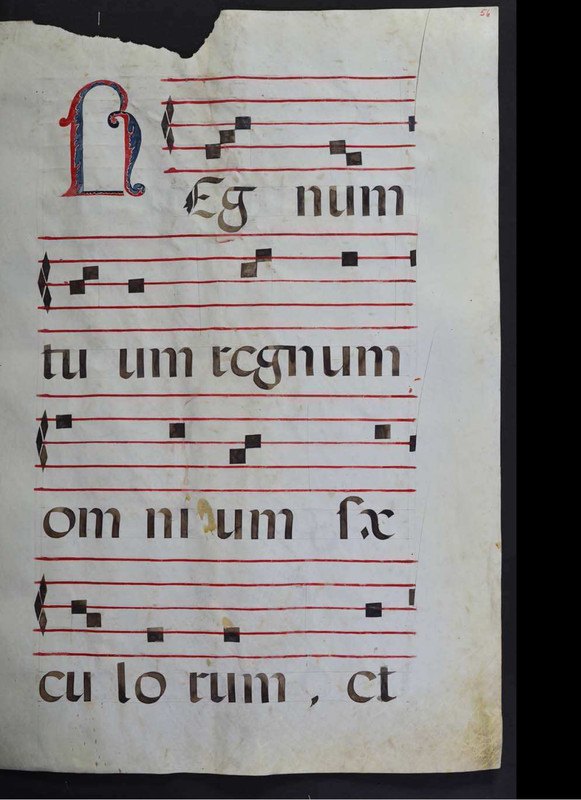 REg num
tu um regnum
om ni um sæ
cu lo rum, et